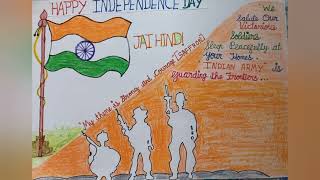 HAPPY INDEPENDENCE DAY
JAI HIND!
We
Salute Our
Victorious
Soldiers
Sleep Peacefully at
your Homes.
INDIAN ARMY is
guarding the Frontiers...
"My thers is Bravery and Courage [SAFFRON]